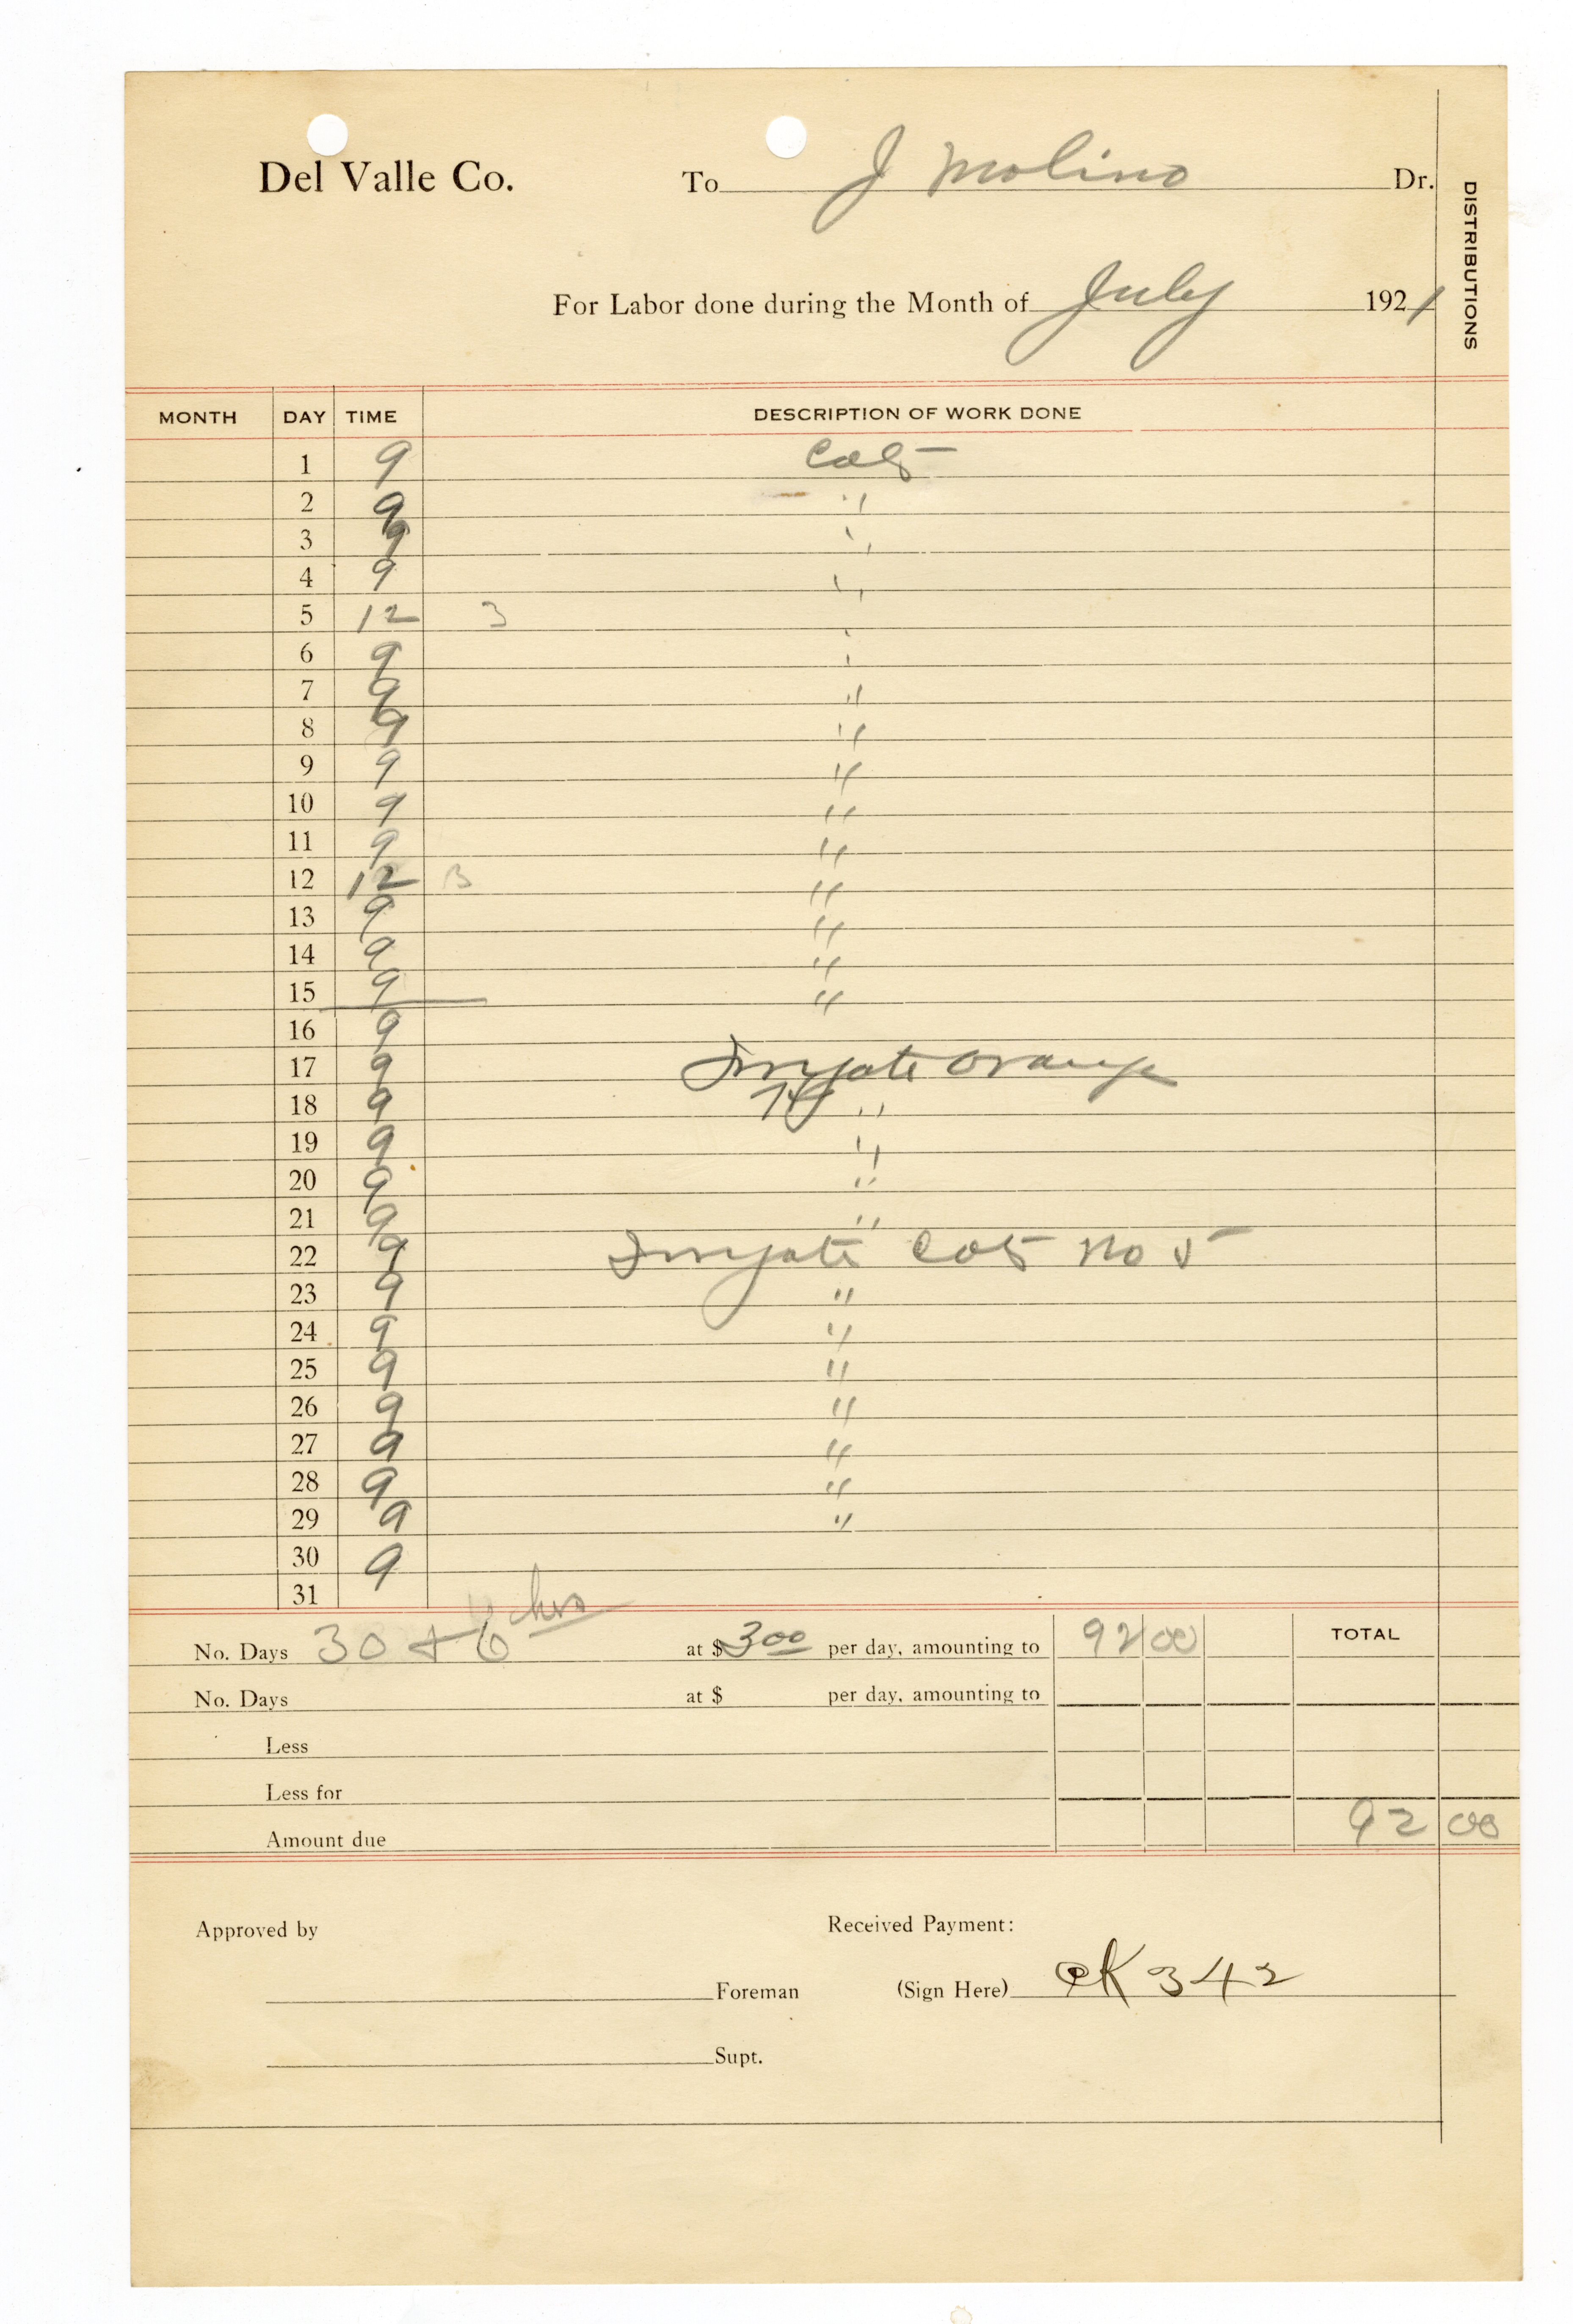 Del Valle Co. To J Molino Dr.
DISTRIBUTIONS
For Labor done during the Month of July 1921
MONTH DAY TIME DESCRIPTION OF WORK DONE
1 9
2 9 "
3 9 "
4 9 "
5 12 3 "
6 9 "
7 9 "
8 9 "
9 9 "
10 9 "
11 9 "
12 12 3 "
13 9 "
14 9 "
15 9 "
16 9
17 9 Irrigate Orange
18 9 "
19 9 "
20 9 "
21 9 "
22 9 Irrigate No 5
23 9 "
24 9 "
25 9 "
26 9 "
27 9 "
28 9 "
29 9 "
30 9
31
No. Days 30 + 6 hrs at $ 3 00 per day, amounting to 92 00 TOTAL
No. Days at $ per day, amounting to
Less
Less for
Amount due 92 00
Approved by Received Payment:
Foreman (Sign Here) CK 342
Supt.